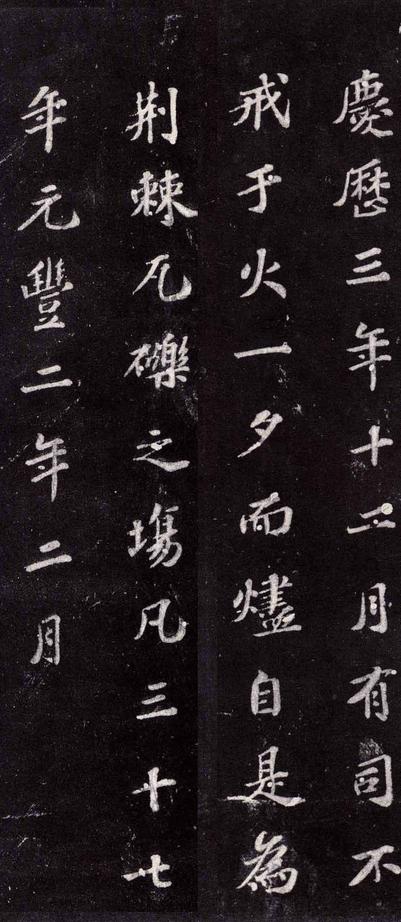 慶曆三年十二月有司不
戒乎火一夕而燼自是為
荆棘瓦礫之塲凡三十七
年元豐二年二月